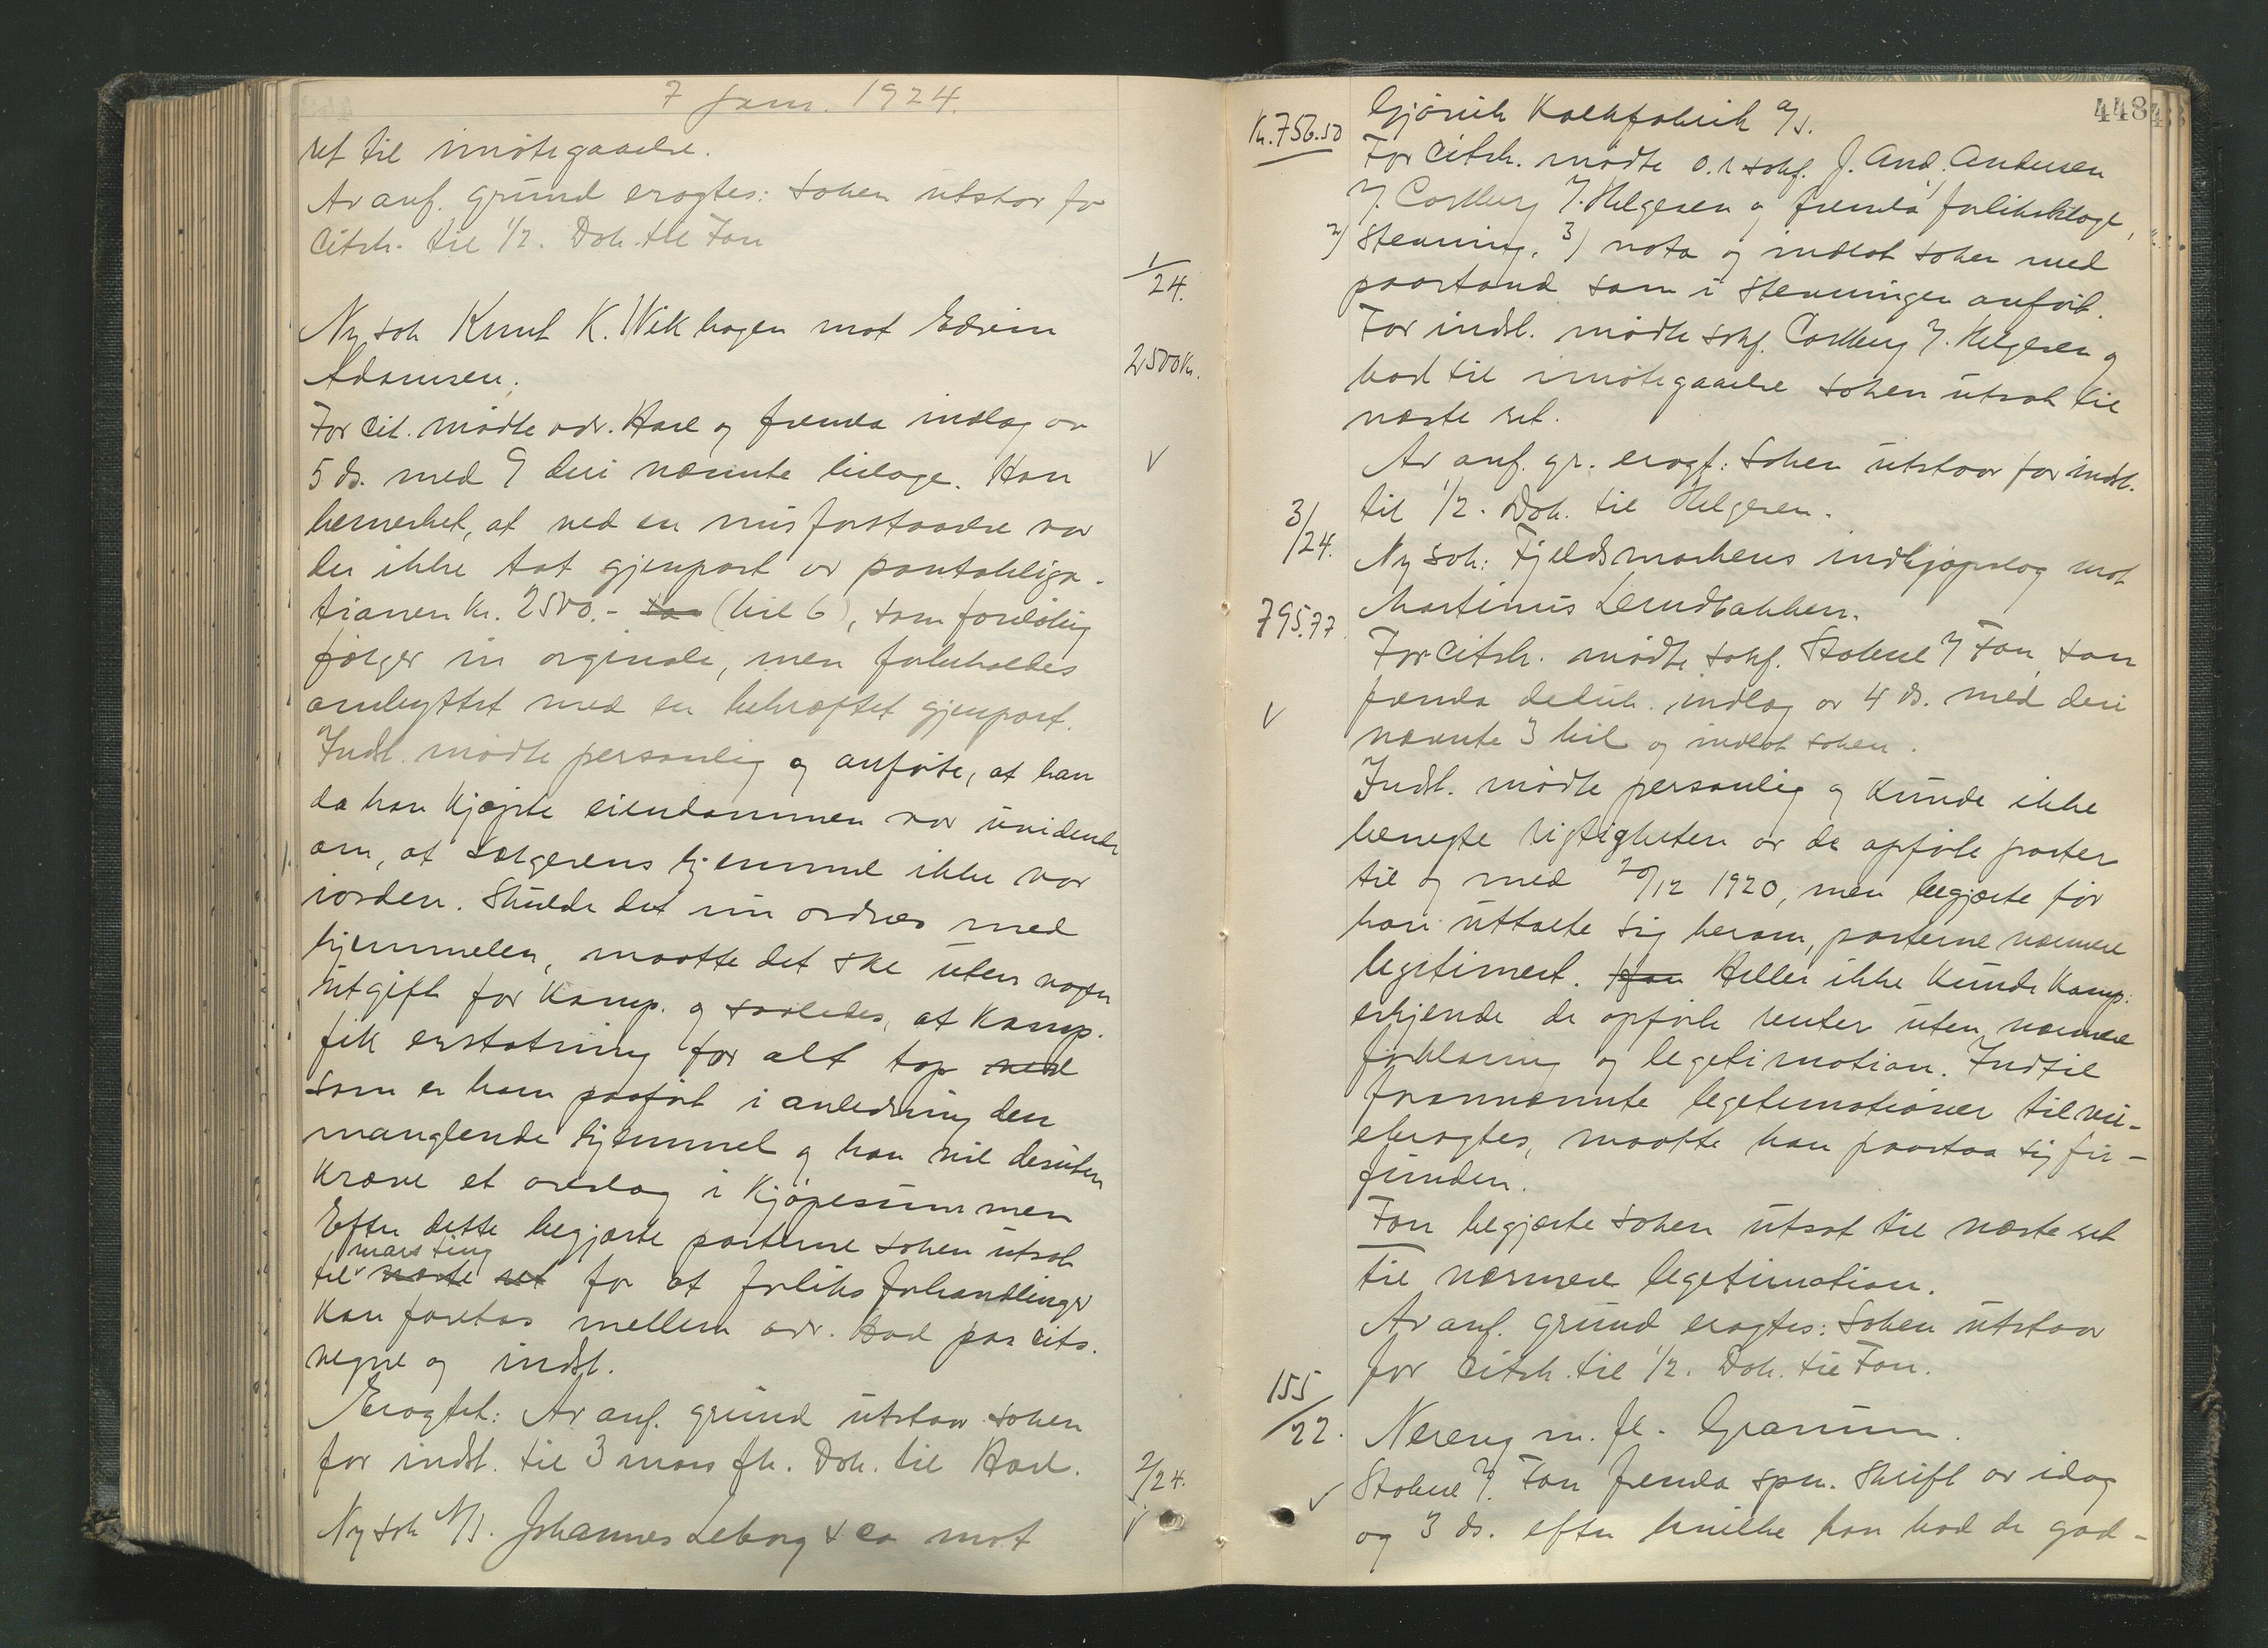 7 Janr. 1924.
ret til imøtegaaelse.
Av anf. grund eragtes: Saken utstar for
Citsk. til 1/2. Dok. til Fon
1/24.
Ny sak Knut K. Wikhagen mot Edvin
Adamsen.
2500 Kr.
For Cit. mødte adv. Hasl og fremla indlæg av
5 ds. med 9 deri nævnte bilage. Han
bemerket, at ved en misforstaaelse var
der ikke tat gjenpart av pantobliga-
tionen kr. 2500.- (bil 6), som foreløbig
følger in orginale, men forbeholdes
ombyttet med en bekræftet gjenpart.
Indst. mødte personlig og anførte, at han
da han kjøpte eiendommen var uvidende
om, at sælgerens hjemmel ikke var
iorden. Skulde det nu ordnes med
hjemmelen, maatte det ske uten nogen
utgift for Komp. og saaledes, at Komp.
fik erstatning for alt tap ved
som er ham paaført i anledning den
manglende hjemmel og han vil desuten
kræve et avslag i kjøpesummen
Efter dette begjærte parterne saken utsat
mars ting
til næste ret for at forliks forhandlinger
kan foretas mellem adv. Hasl paa cits.
vegne og indst.
Eragtet: Av anf. grund utstaar saken
for indst. til 3 mars fk. Dok. til Hasl.
2/24.
Ny sak A/S. Johannes Leborg & Co mot
448
Gjøvik Kalkfabrik A/S.
Kr. 756.50
For Citsk. mødte o.r.sakf. J. And. Andersen
v/ Carlberg v/ Helgesen og fremla 1) forliksklage,
2) Stevning, 3) nota og indlot saken med
paastand som i stevningen anført.
For indst. mødte sakf. Carlberg v/ Helgesen og
bad til imøtegaaelse saken utsat til
næste ret.
Av anf. gr. eragt: Saken utstaar for indst.
til 1/2. Dok. til Helgesen.
3/24.
Ny sak: Fjeldsmarkens indkjøpslag mot
Martinus Lerudbakken.
795.77
For Citsk. mødte sakf. Stabel v/ Fon, som
fremla deduk. indlæg av 4 ds. med deri
nævnte 3 bil og indlot saken.
Indst. mødte personlig og kunde ikke
benegte rigtigheten av de opførte poster
til og med 20/12 1920, men begjærte før
han uttalte sig herom, posterne nærmere
legitimert. Han Heller ikke kunde Komp:
erkjende de opførte renter uten nærmere
forklaring og legetimation. Indtil
forannævnte legetimationer tilveie-
bragtes, maatte han paastaa sig fri-
funden.
Fon begjærte saken utsat til næste ret
til nærmere legetimation.
Av anf. grund eragtes: Saken utstaar
for Citsk. til 1/2. Dok. til Fon.
155/22.
Nereng m. fl. - Granum.
Stabel v/ Fon fremla spm. skrift av idag
og 3 ds. efter hvilke han bad de god-